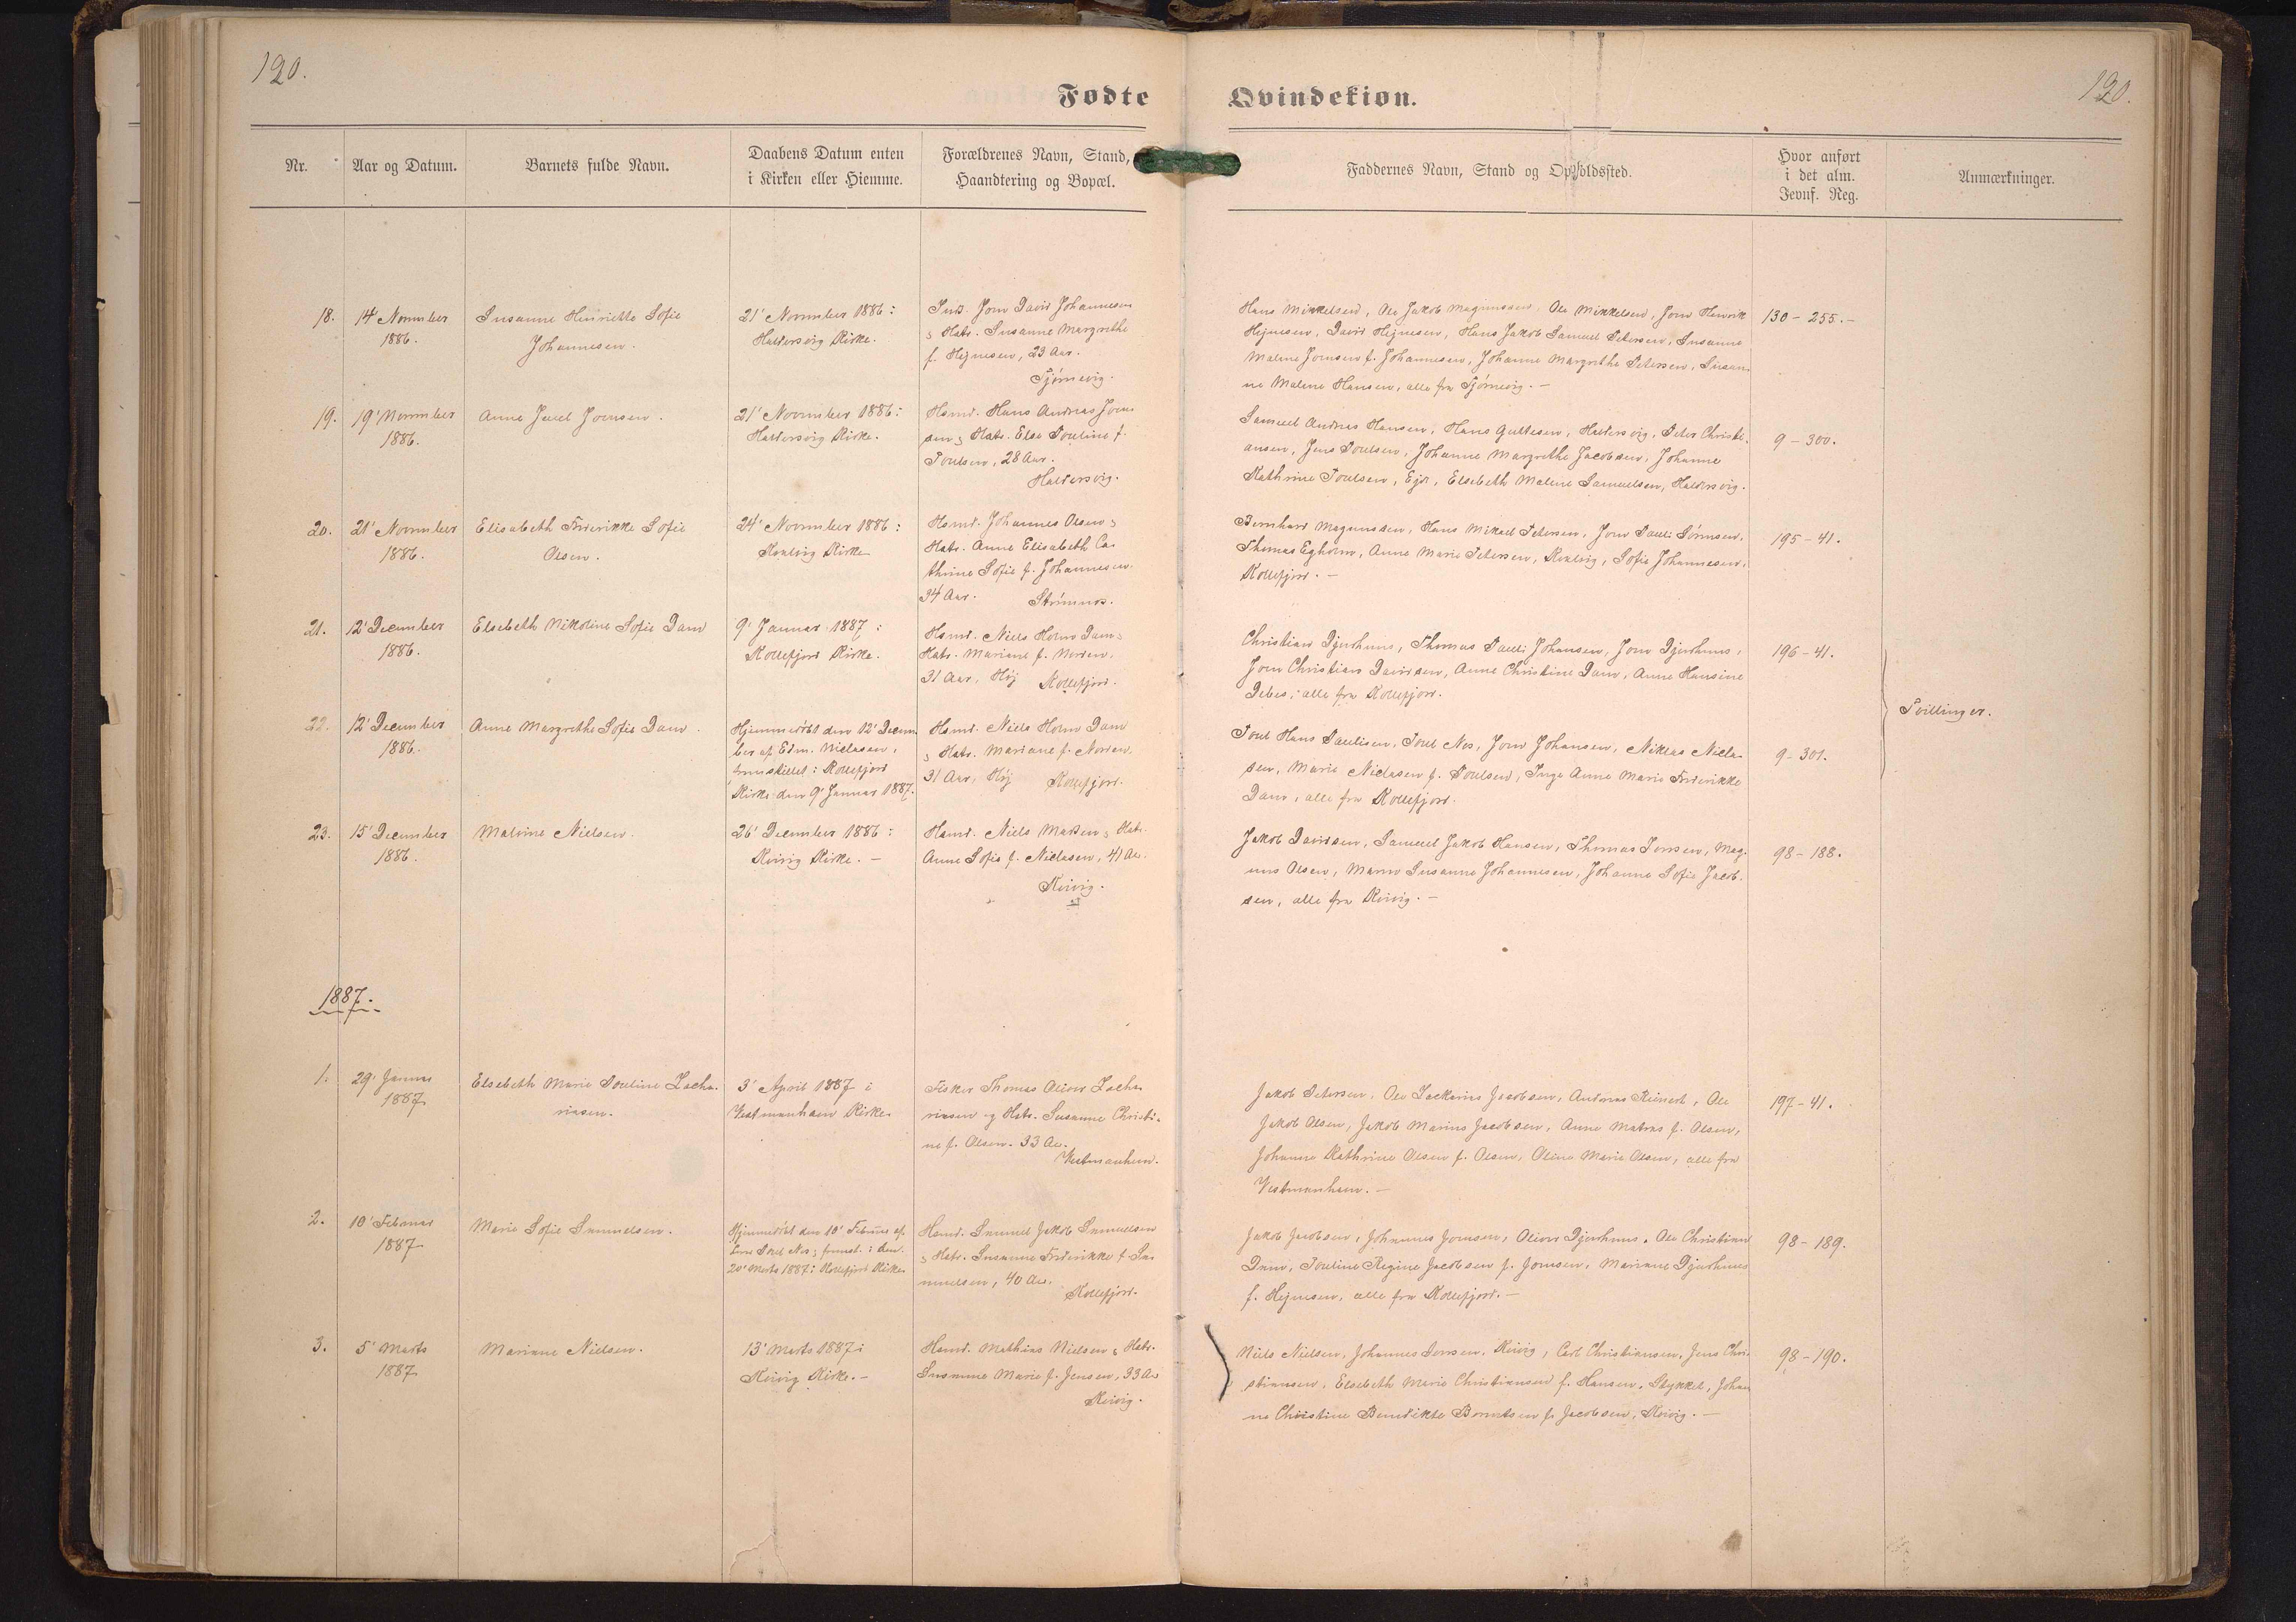 120.
Fødte
Qvindekiøn.
120.
Nr.
Aar og Datum.
Barnets fulde Navn.
Daabens Datum enten
i Kirken eller Hiemme.
Forældrenes Navn, Stand,
Haandtering og Bopæl.
Faddernes Navn, Stand og Opholdssted.
Hvor anført
i det alm.
Jevnf. Reg.
Anmærkninger.
18.
14' November
1886.
Susanne Henriette Sofie
Johannesen.
21' November 1886 i
Haldersvig Kirke.
Inds. Jorn David Johannesen
& Hstr. Susanne Margrethe
f. Hejnesen, 23 Aar.
Tjørnevig.
Hans Mikkelsen, Ole Jakob Magnussen, Ole Mikkelsen, Jorn Henrik
Hejnesen, David Hejnesen, Hans Jakob Samuel Petersen, Susanne
Malene Joensen f. Johannesen, Johanne Margrethe Petersen, Susan-
ne Malene Hansen, alle fra Tjørnevig. —
130 - 255. -
19.
19' November
1886.
Anne Joensen.
21' November 1886 i
Haldersvig Kirke.
Hsmd. Hans Andreas Joen-
sen & Hstr. Else Pouline f.
Poulsen, 28 Aar.
Haldersvig.
Samuel Andreas Hansen, Hans Guttesen, Haldersvig, Peter Christi-
ansen, Jens Poulsen, Johanne Margrethe Jacobsen, Johanne
Kathrine Poulsen, Ejde, Elsebeth Malene Samuelsen, Haldersvig.
9 - 300.
20.
21' November
1886.
Elisabeth Frederikke Sofie
Olsen.
24' November 1886 i
Kvalvig Kirke
Hsmd. Johannes Olsen &
Hstr. Anne Elisabeth Ca-
thrine Sofie f. Johannesen.
34 Aar. Strømnæs.
Bernhard Magnussen, Hans Mikael Petersen, Jorn Pauli Sørensen,
Thomas Egholm, Anne Marie Petersen, Kvalvig, Sofie Johannesen,
Kollefjord. —
195 - 41.
21.
12' December
1886.
Elsebeth Nikoline Sofie Dam
9' Januar 1887 i
Kollefjord Kirke.
Hsmd. Niels Holm Dam &
Hstr. Mariane f. Norden,
31 Aar, Høj Kollefjord.
Christian Djurhuus, Thomas Pauli Johansen, Jorn Djurhuus,
Jorn Christian Davidsen, Anne Christine Dam, Anne Hansine
Debes, alle fra Kollefjord.
196 - 41.
Tvillinger.
22.
12' December
1886.
Anne Margrethe Sofie Dam.
Hjemmedøbt den 12' Decem-
ber af Edm. Niclasen,
fremstillet i Kollefjord
Kirke den 9' Januar 1887.
Hsmd. Niels Holm Dam
& Hstr. Mariane f. Norden,
31 Aar, Høj Kollefjord.
Poul Hans Paulisen, Poul Nos, Jorn Johansen, Niklas Nicla-
sen, Marie Niclasen f. Poulsen, Inge Anne Marie Frederikke
Dam, alle fra Kollefjord.
9 - 301.
23.
15' December
1886.
Malvine Nielsen.
26' December 1886 i
Kvivig Kirke. —
Hsmd. Niels Madsen & Hstr.
Anne Sofie f. Niclasen, 41 Aar.
Kvivig.
Jakob Davidsen, Samuel Jakob Hansen, Thomas Jensen, Mag-
nus Olsen, Maren Susanne Johannesen, Johanne Sofie Jacob-
sen, alle fra Kvivig. —
98 - 188.
1887.
1.
29' Januar
1887
Elsebeth Marie Pouline Zacha-
riasen.
3' April 1887 i
Vestmanhavn Kirke.
Fisker Thomas Oliver Zacha-
riasen og Hstr. Susanne Christi-
ne f. Olsen. 33 Aar.
Vestmanhavn.
Jakob Petersen, Ole Zackarius Jacobsen, Andreas Reinert, Ole
Jakob Olsen, Jakob Marius Jacobsen, Anne Matras f. Olsen,
Johanne Kathrine Olsen f. Olsen, Oline Marie Olsen, alle fra
Vestmanhavn. —
197 - 41.
2.
10' Februar
1887
Marie Sofie Samuelsen.
Hjemmedøbt den 10' Februar af
Poul Nos; fremst. i den
20' Marts 1887 i Kollefjord Kirke
Hsmd. Samuel Jakob Samuelsen
& Hstr. Susanne Frederikke f. Sa-
muelsen, 40 Aar.
Kollefjord.
Jakob Jacobsen, Johannes Joensen, Oliver Djurhuus, Ole Christian
Dam, Pouline Regine Jacobsen f. Joensen, Mariane Djurhuus
f. Hejnesen, alle fra Kollefjord. —
98 - 189.
3.
5' Marts
1887
Mariane Nielsen.
13' Marts 1887 i
Kvivig Kirke. —
Hsmd. Mathias Nielsen & Hstr.
Susanne Marie f. Jensen, 33 Aar
Kvivig.
Niels Nielsen, Johannes Jensen, Kvivig, Carl Christiansen, Jens Chri-
stiansen, Elsebeth Marie Christiansen f. Hansen, Stykket, Johan-
ne Christine Benedikte Berentsen f. Jacobsen, Kvivig. —
98 - 190.